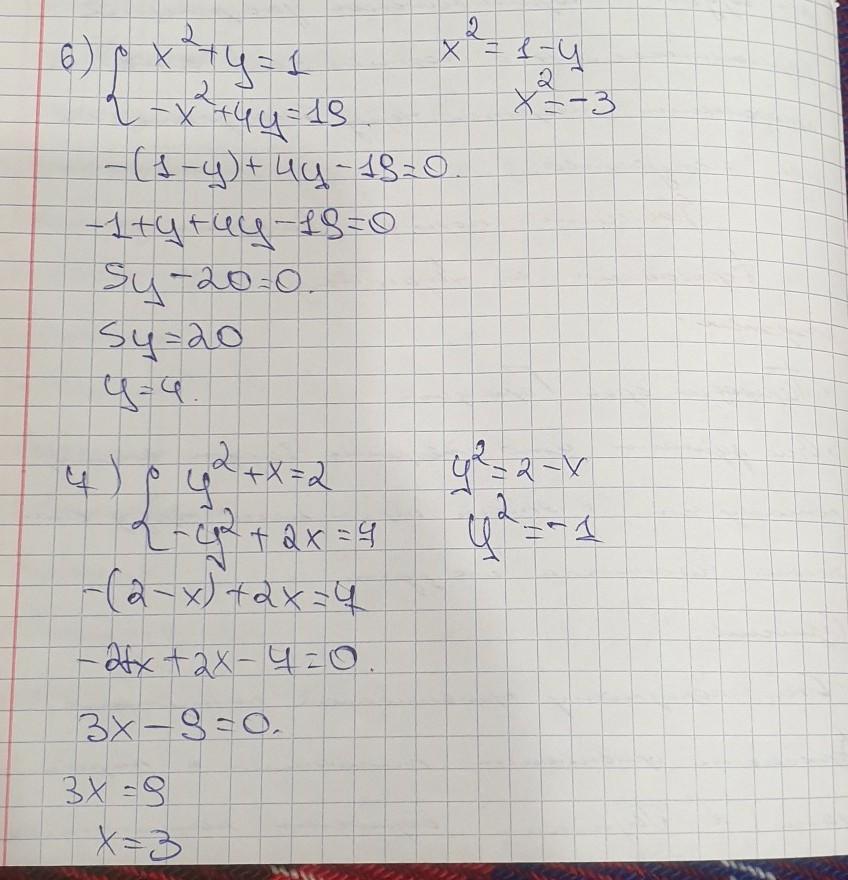 6) { x²+y=1
-x²+4y=19.
x²=1-y
x²=-3
-(1-y)+4y-19=0.
-1+y+4y-19=0
5y-20=0.
5y=20
y=4.
7) { y²+x=2
-y²+2x=7
y²=2-x
y²=-1
-(2-x)+2x=7
-2+x+2x-7=0.
3x-9=0.
3x=9
x=3